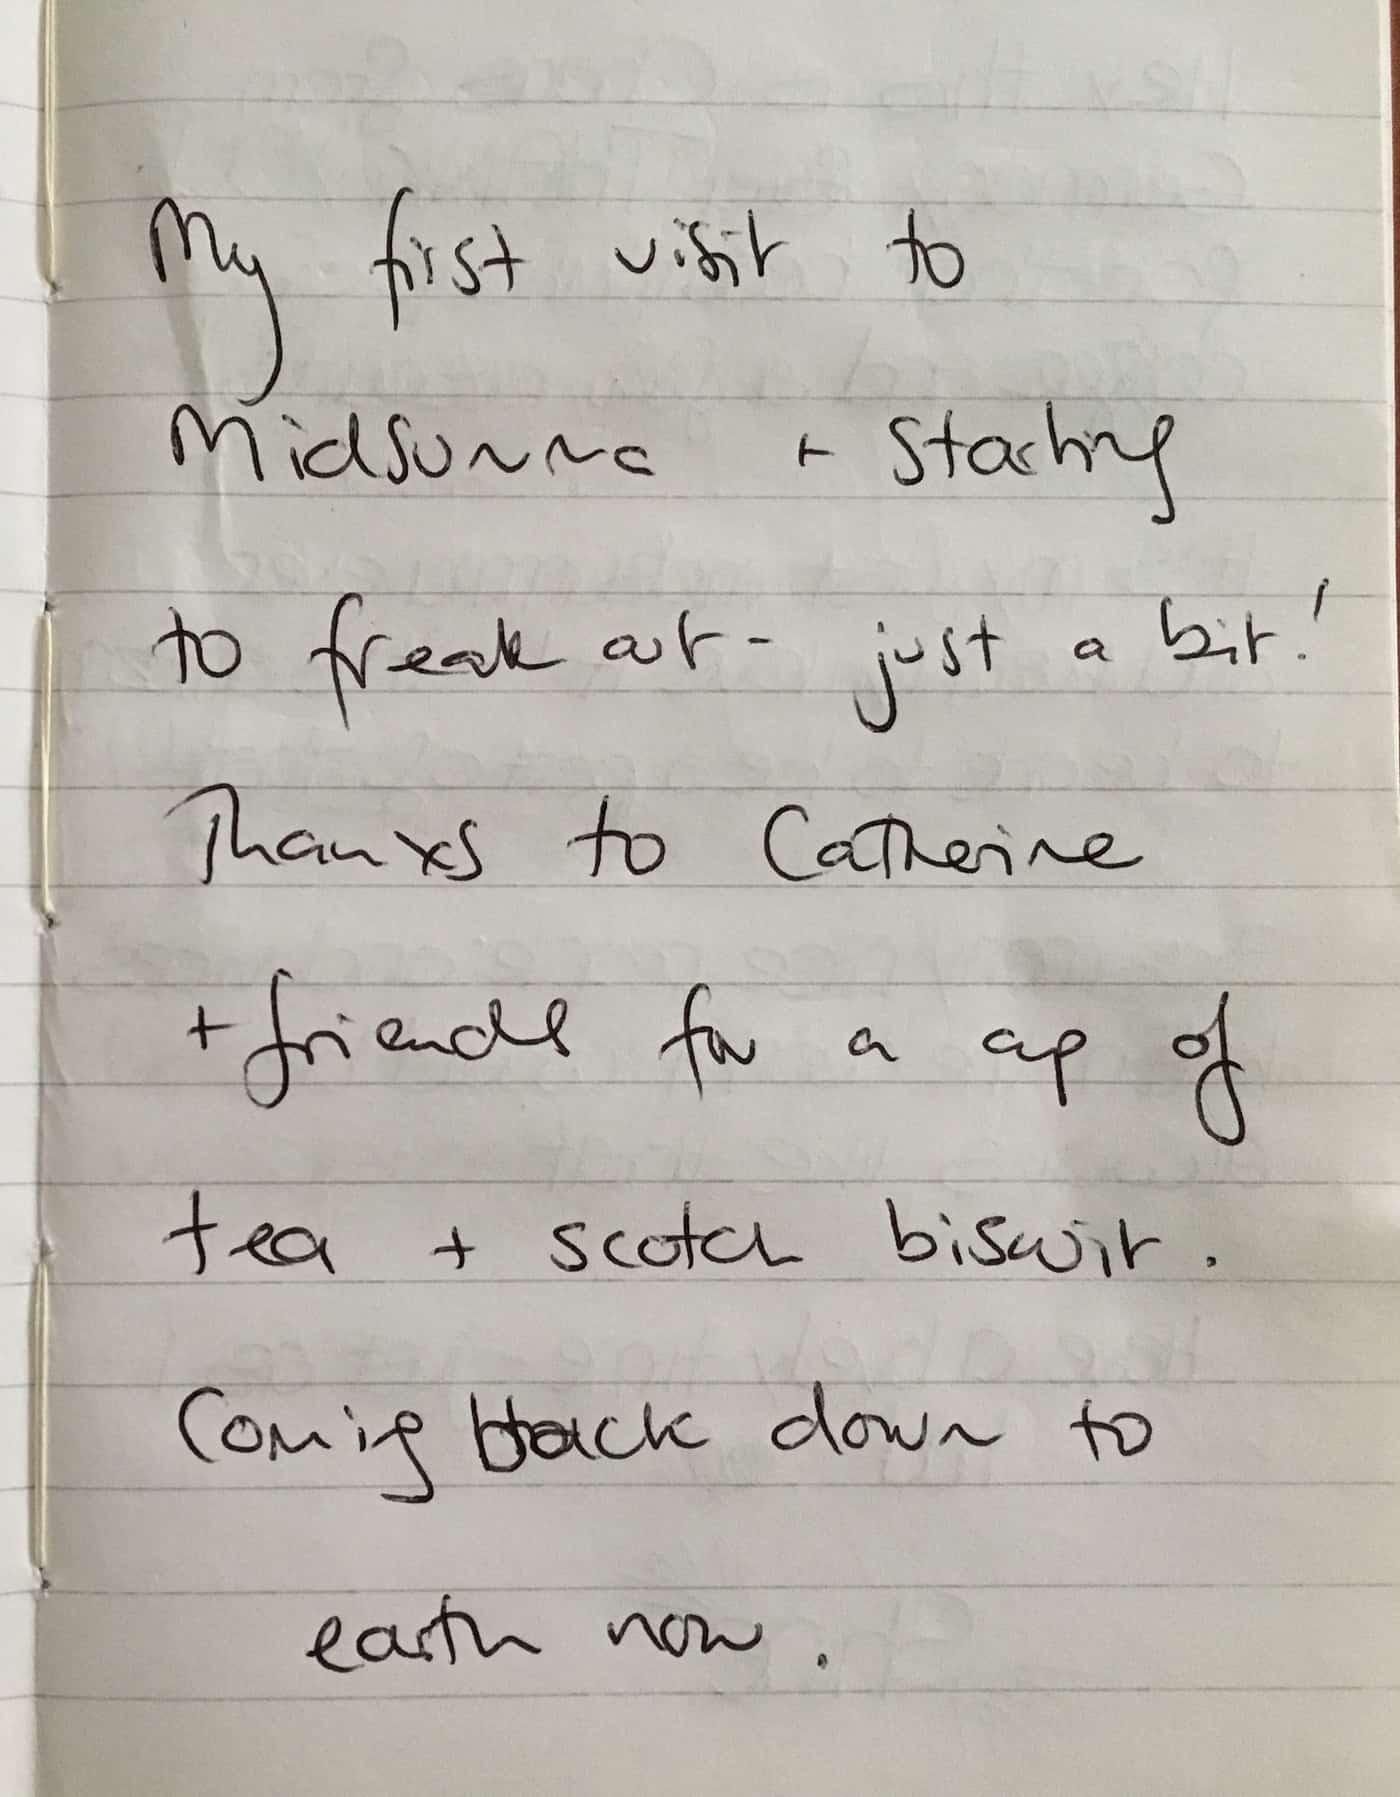 My first visit to
Midsumma + starting
to freak out - just a bit!
Thanks to Catherine
+ friends for a cup of
tea + scotch biscuit.
Coming back down to
earth now.